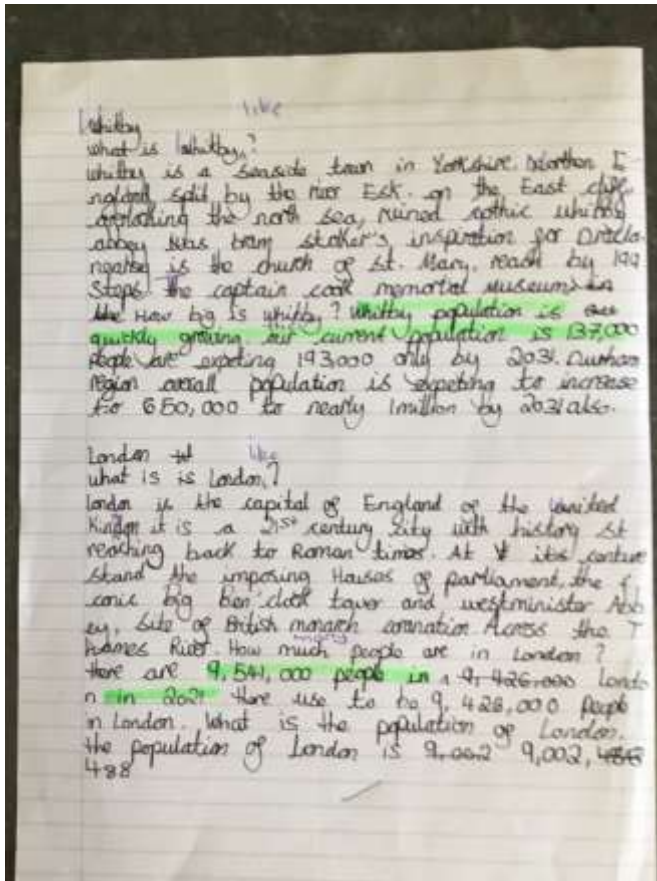 like
Whitby
what is Whitby?
Whitby is a seaside town in Yorkshire. Northen E
ngland split by the river Esk. on the East cliff
overlooking the north sea, ruined gothic whitby
abbey was bram stoker's inspiration for Dracla.
is the church of st. Mary, reach by 199
Steps. the captain cook memorial Museum in
the How big is whitby? Whitby population is
quickly growing current population is 137,000
People are expeting 193,000 only by 2031. Durham
region overall population is expeting to increase
to 650,000 to nearly 1million by 2031 also.
London like
what is is London?
london is the capital of England of the United
Kingdom it is a 21st century city with history st
reaching back to Roman times. At its
stand the imposing Houses of parliament, the i
conic big ben' clock tower and westminister Abb
ey, site of British monarch coronation Across the T
hames River. How much many people are in London?
there are 9,541,000 people in 9,426,000 Londo
n in 2021 there use to be 9,428,000 People
in London. What is the population of London.
the population of London is 9,002 9,002,
488